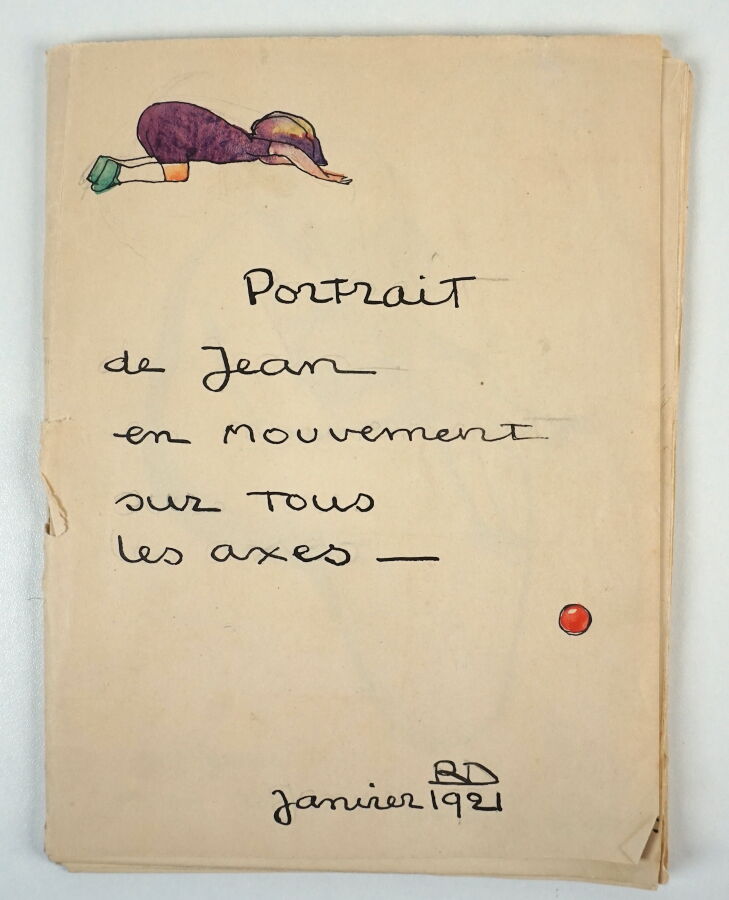 Portrait
de Jean
en mouvement
sur tous
les axes —
RD
janvier 1921